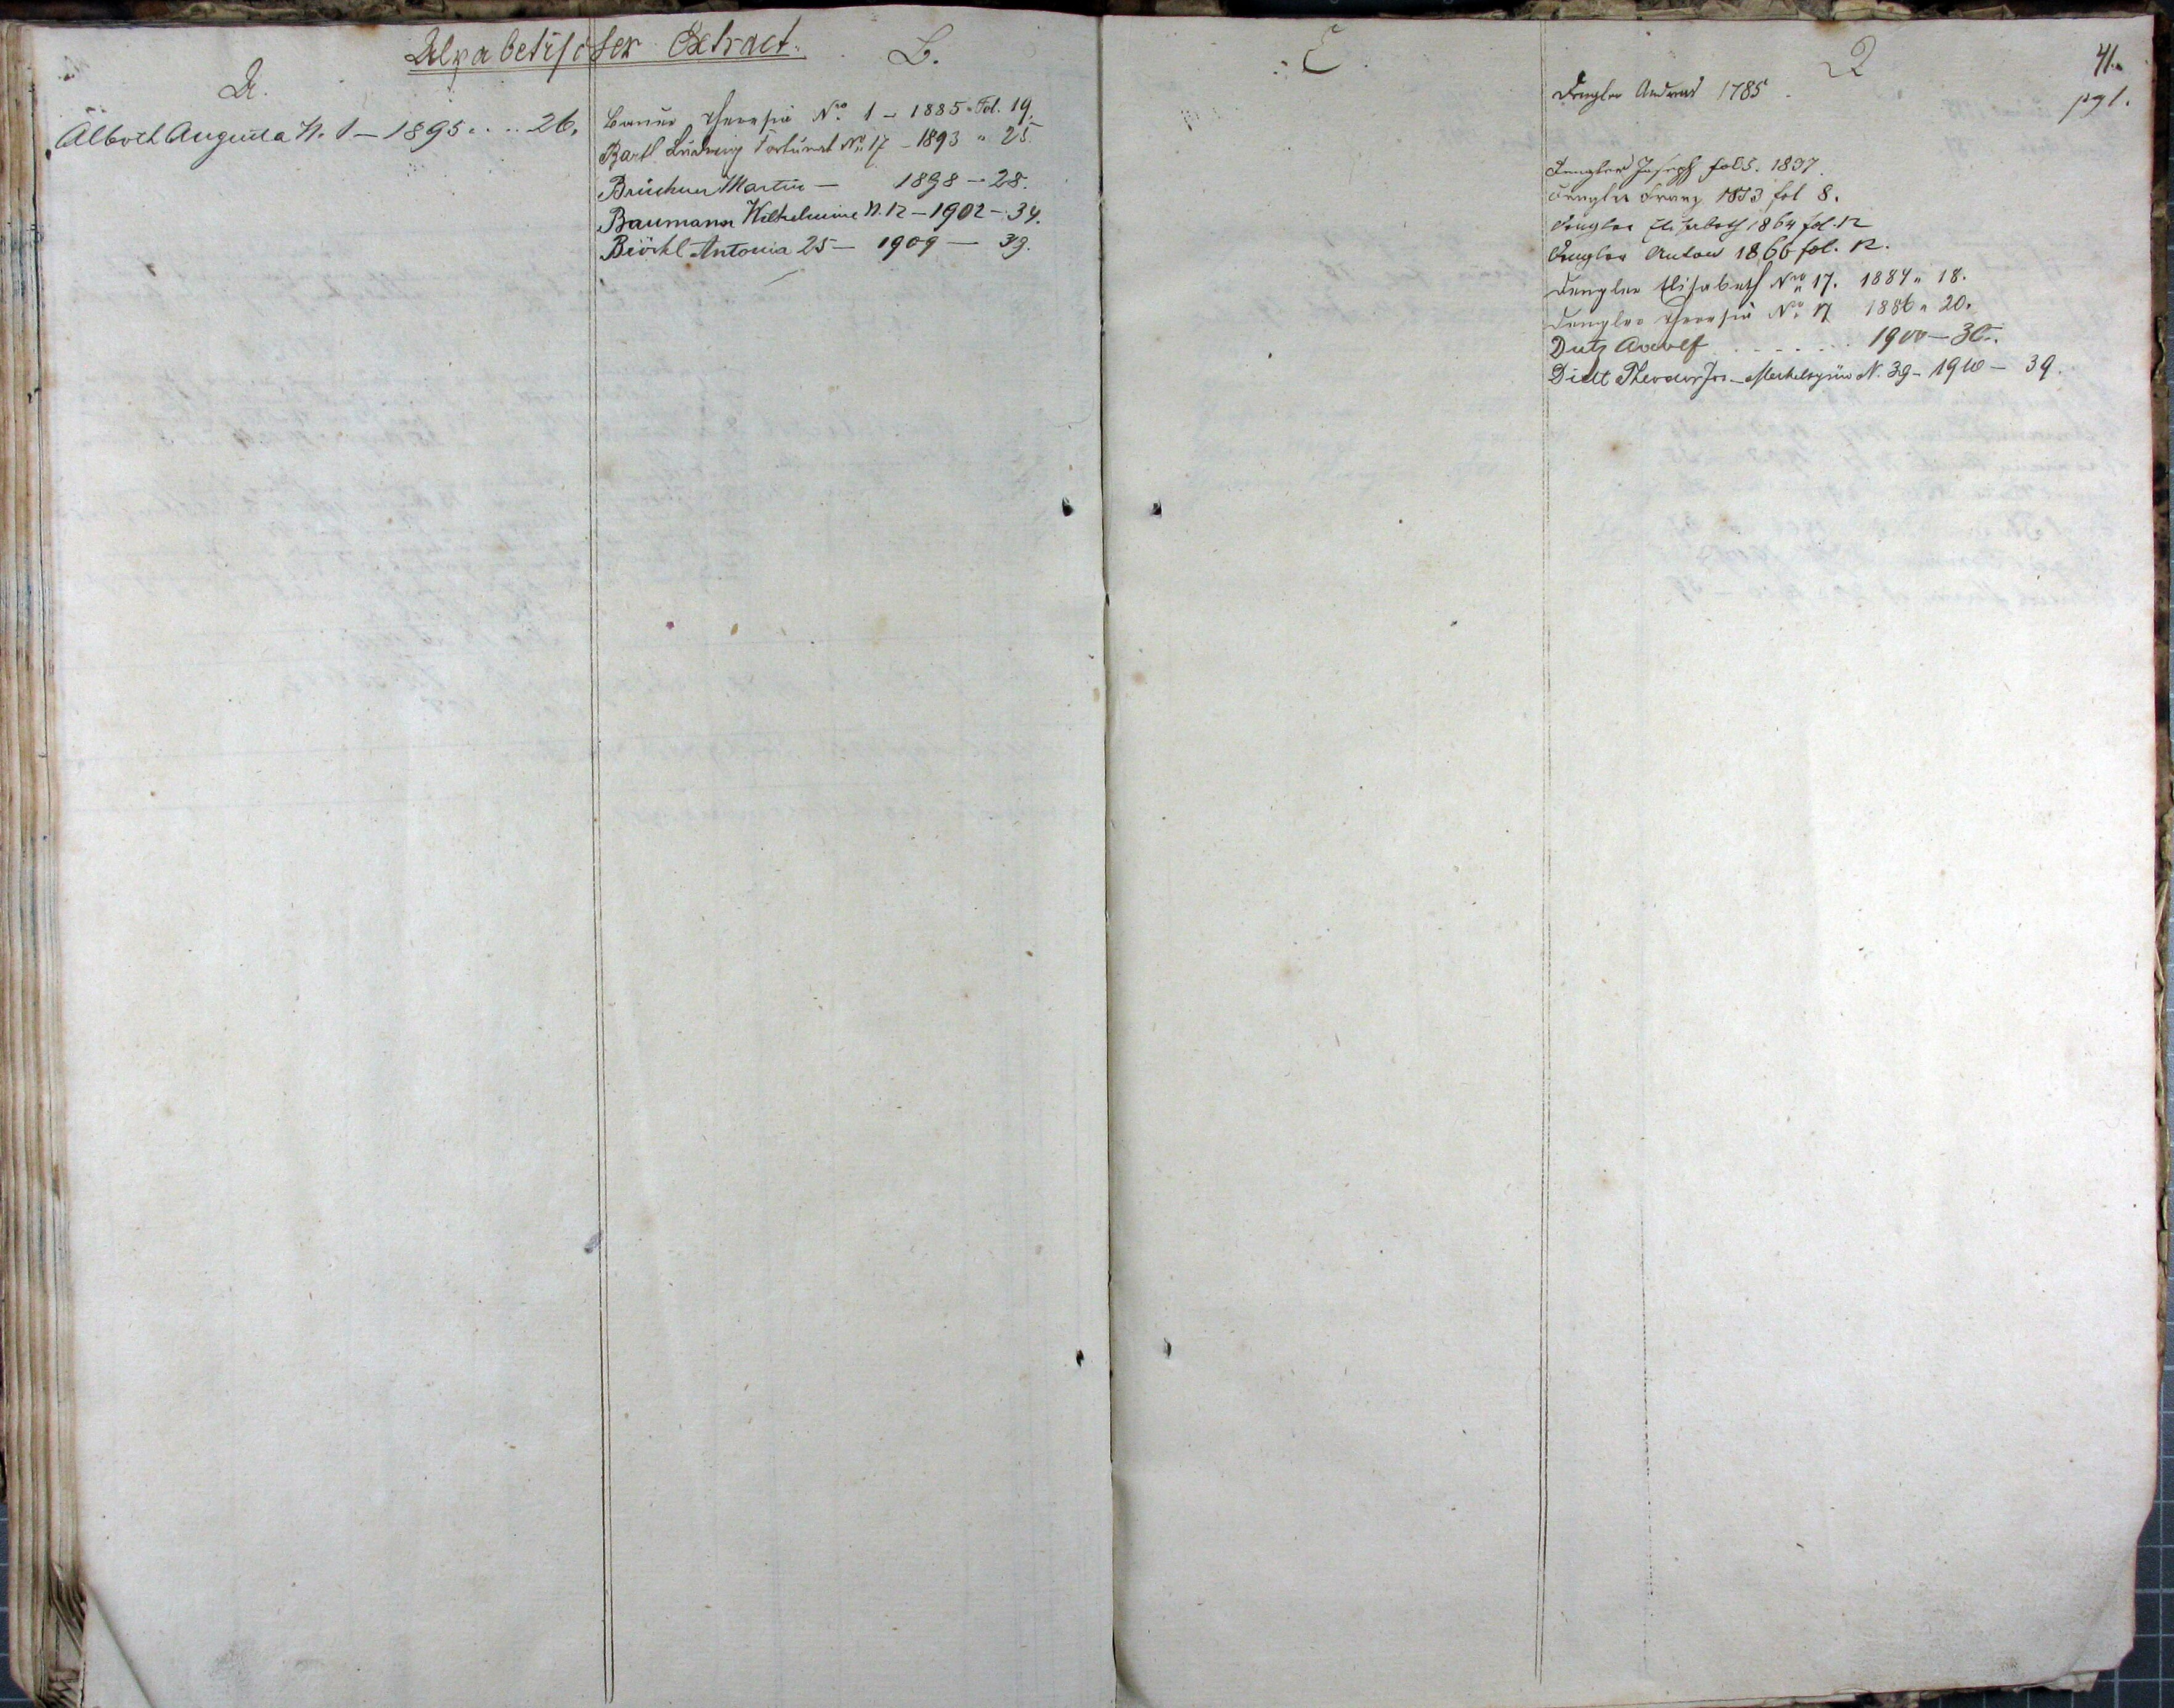 Alpabetischer Extract.
A.
Alboth Augusta N. 1 – 1895 . . . 26.
B.
Bauer Theresia Nro. 1 – 1885 " Fol. 19.
Bartl Ludwig Fortunat No. 17 – 1893 " 25
Brückner Martin – 1898 – 28.
Baumann Wilhelmine N. 12 – 1902 – 34.
Antonia 25 – 1909 – 39.
C.
D
41.
pg 1.
Dengler Andreas 1785
Dengler Joseph fol 5. 1837.
Dengler Franz 1853 fol 8.
Dengler Elisabeth 1864 fol. 12
Dengler Anton 1866 fol. 12.
Dengler Elisabeth Nro. 17. 1884 " 18.
Dengler Theresia Nro. 17 1886 " 20.
Dutz Adolf . . . . . . 1900 – 30.
Theodor Jos – N. 39 – 1910 – 39.